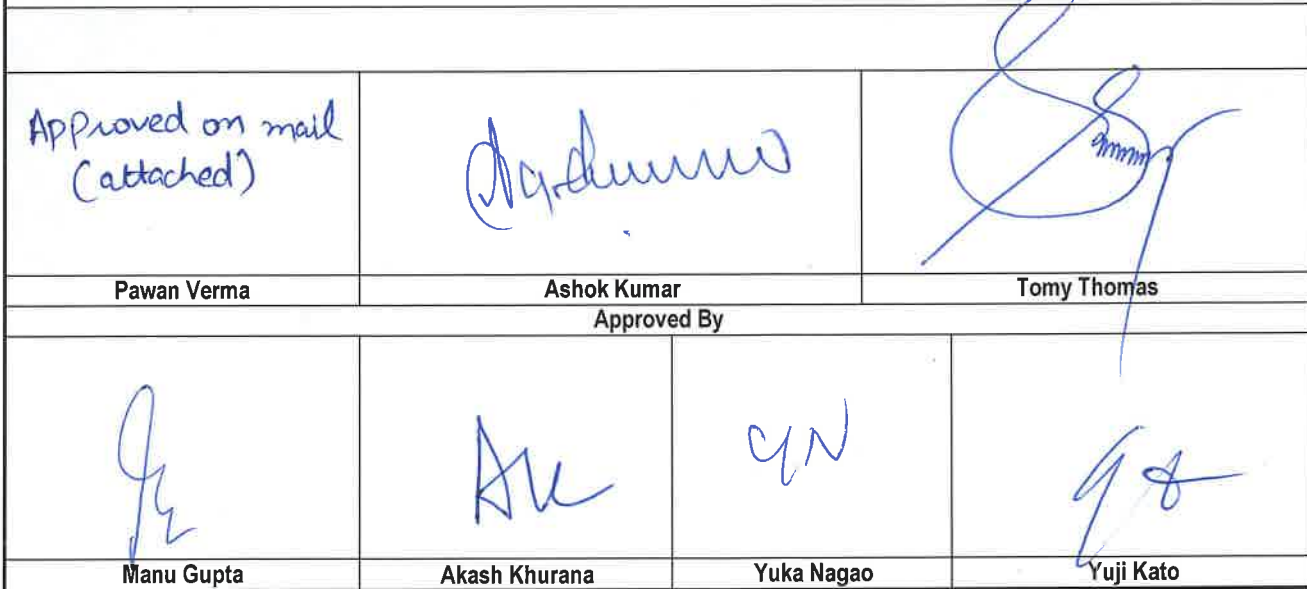 Approved on mail
(attached)
Pawan Verma
Ashok Kumar
Tomy Thomas
Approved By
AK
YN
Manu Gupta
Akash Khurana
Yuka Nagao
Yuji Kato